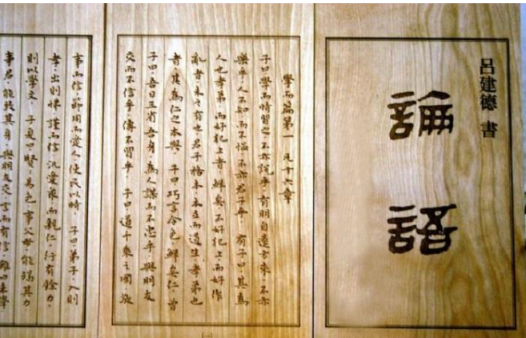 呂建德 書
論語
學而篇第一 凡十六章
子曰學而時習之不亦說乎、有朋自遠方來、不亦
樂乎、人不知而不慍、不亦君子乎、有子曰、其為
人也孝弟而好犯上者、鮮矣、不好犯上、而好作
亂者、未之有也、君子務本、本立而道生、孝弟也
者、其為仁之本與、子曰、巧言令色、鮮矣仁、曾
子曰、吾日三省吾身、為人謀而不忠乎、與朋友
交而不信乎、傳不習乎、子曰、道千乘之國、敬
事而信、節用而愛人、使民以時、子曰、弟子、入則
孝、出則悌、謹而信、汎愛衆、而親仁、行有餘力、
則以學文、子夏曰、賢賢易色、事父母、能竭其力、
事君、能致其身、與朋友交、言而有信、雖曰未學